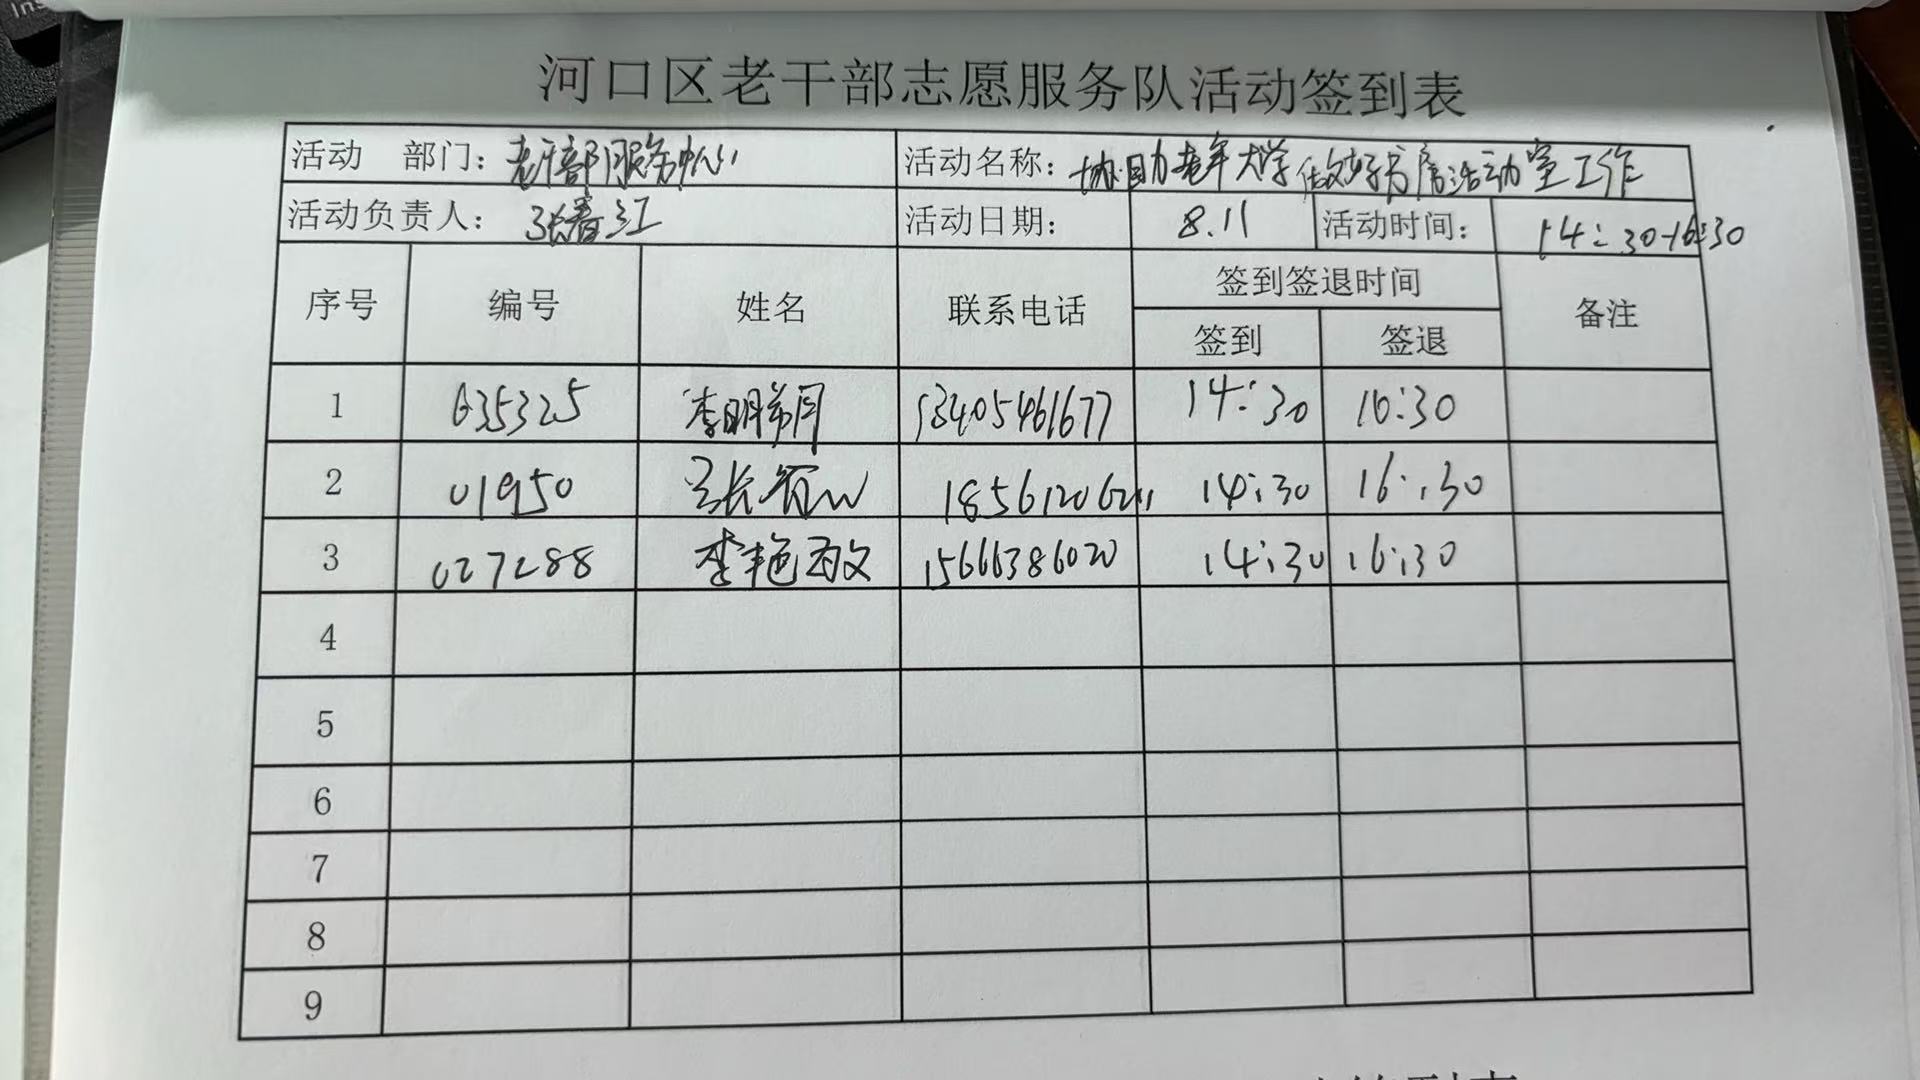 Ins
河口区老干部志愿服务队活动签到表
活动 部门: 老干部服务中心 活动名称: 协助老年大学做好书席活动室工作
活动负责人: 张春江 活动日期: 8.11 活动时间: 14:30-16:30
序号 编号 姓名 联系电话 签到签退时间 备注
签到 签退
1 035325 李明 13405461677 14:30 16:30
2 01950 185612062 14:30 16:30
3 027288 李艳敏 15666386020 14:30 16:30
4
5
6
7
8
9